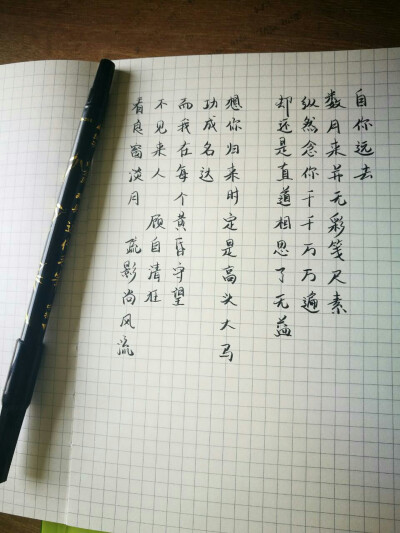 自你远去
数月来并无彩笺尺素
纵然念你千千万万遍
却还是直道相思了无益
想你归来时定是高头大马
功成名达
而我在每个黄昏守望
不见来人 顾自清狂
有良窗淡月 疏影尚风流